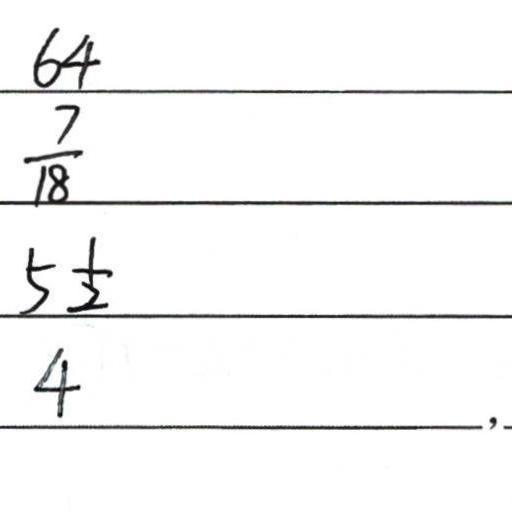 64
7/18
5 1/2
4
,